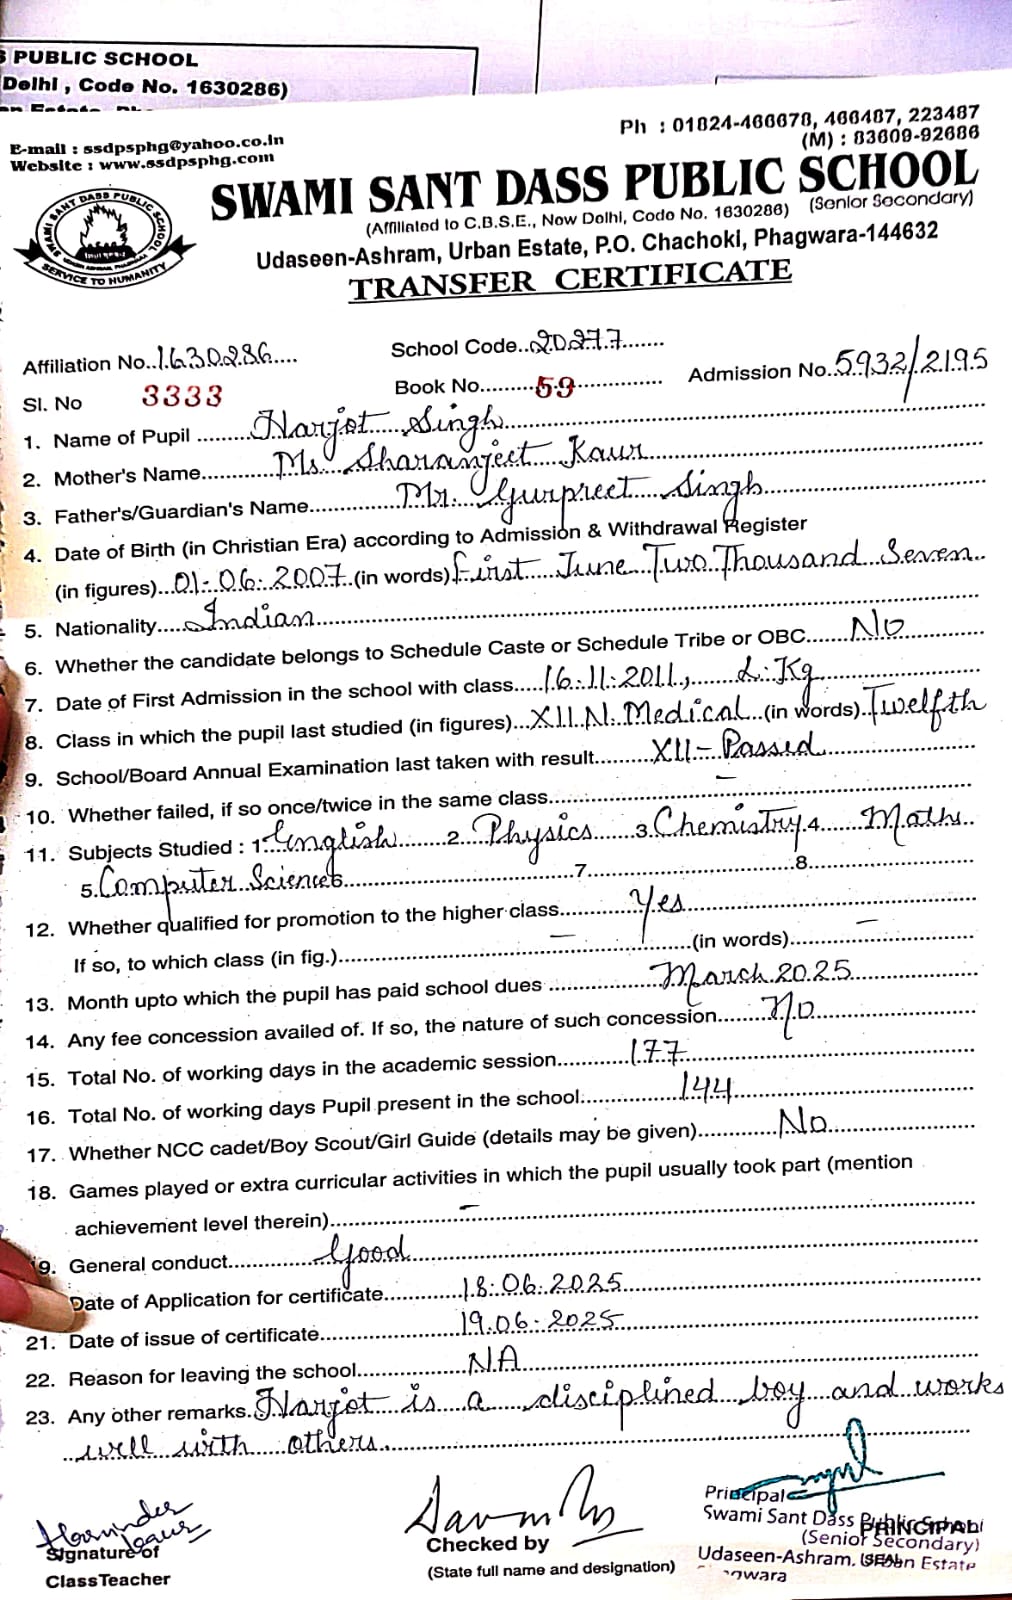 PUBLIC SCHOOL
Delhi , Code No. 1630286)
E-mail : ssdpsphg@yahoo.co.in
Website : www.ssdpsphg.com
Ph : 01824-466678, 466487, 223487
(M) : 83609-92686
SWAMI SANT DASS PUBLIC SCHOOL
(Affiliated to C.B.S.E., New Delhi, Code No. 1630286) (Senior Secondary)
Udaseen-Ashram, Urban Estate, P.O. Chachoki, Phagwara-144632
TRANSFER CERTIFICATE
SWAMI SANT DASS PUBLIC SCHOOL
SERVICE TO HUMANITY
Affiliation No..1630286.... School Code..20277........ Admission No..5932/2195
Sl. No 3333 Book No.........59..............
1. Name of Pupil .........Harjot Singh
2. Mother's Name............Ms. Sharanjeet Kaur
3. Father's/Guardian's Name...............Mr. Gurpreet Singh
4. Date of Birth (in Christian Era) according to Admission & Withdrawal Register
(in figures)...01-06-2007.(in words) First June Two Thousand Seven..
5. Nationality.....Indian
6. Whether the candidate belongs to Schedule Caste or Schedule Tribe or OBC.......No
7. Date of First Admission in the school with class.....16.11.2011, L.Kg
8. Class in which the pupil last studied (in figures)...XII N. Medical..(in words).Twelfth
9. School/Board Annual Examination last taken with result..........XII- Passed
10. Whether failed, if so once/twice in the same class.... –
11. Subjects Studied : 1.English.......2..Physics......3.Chemistry.4......Maths..
5.Computer Science6............7............8............
12. Whether qualified for promotion to the higher class............Yes
If so, to which class (in fig.)........ – ........(in words)........ –
13. Month upto which the pupil has paid school dues ...............March 2025
14. Any fee concession availed of. If so, the nature of such concession.........No
15. Total No. of working days in the academic session............177
16. Total No. of working days Pupil present in the school................144
17. Whether NCC cadet/Boy Scout/Girl Guide (details may be given)............No
18. Games played or extra curricular activities in which the pupil usually took part (mention
achievement level therein)........ –
9. General conduct..............Good
Date of Application for certificate.............18.06.2025
21. Date of issue of certificate.......................19.06.2025
22. Reason for leaving the school..................NA
23. Any other remarks.Harjot is a disciplined boy and works
well with others.
Harvinder Kaur
Signature of
ClassTeacher
Checked by
(State full name and designation)
Principal
Swami Sant Dass Public School
PRINCIPAL
(Senior Secondary)
Udaseen-Ashram, Urban Estate
(SEAL)